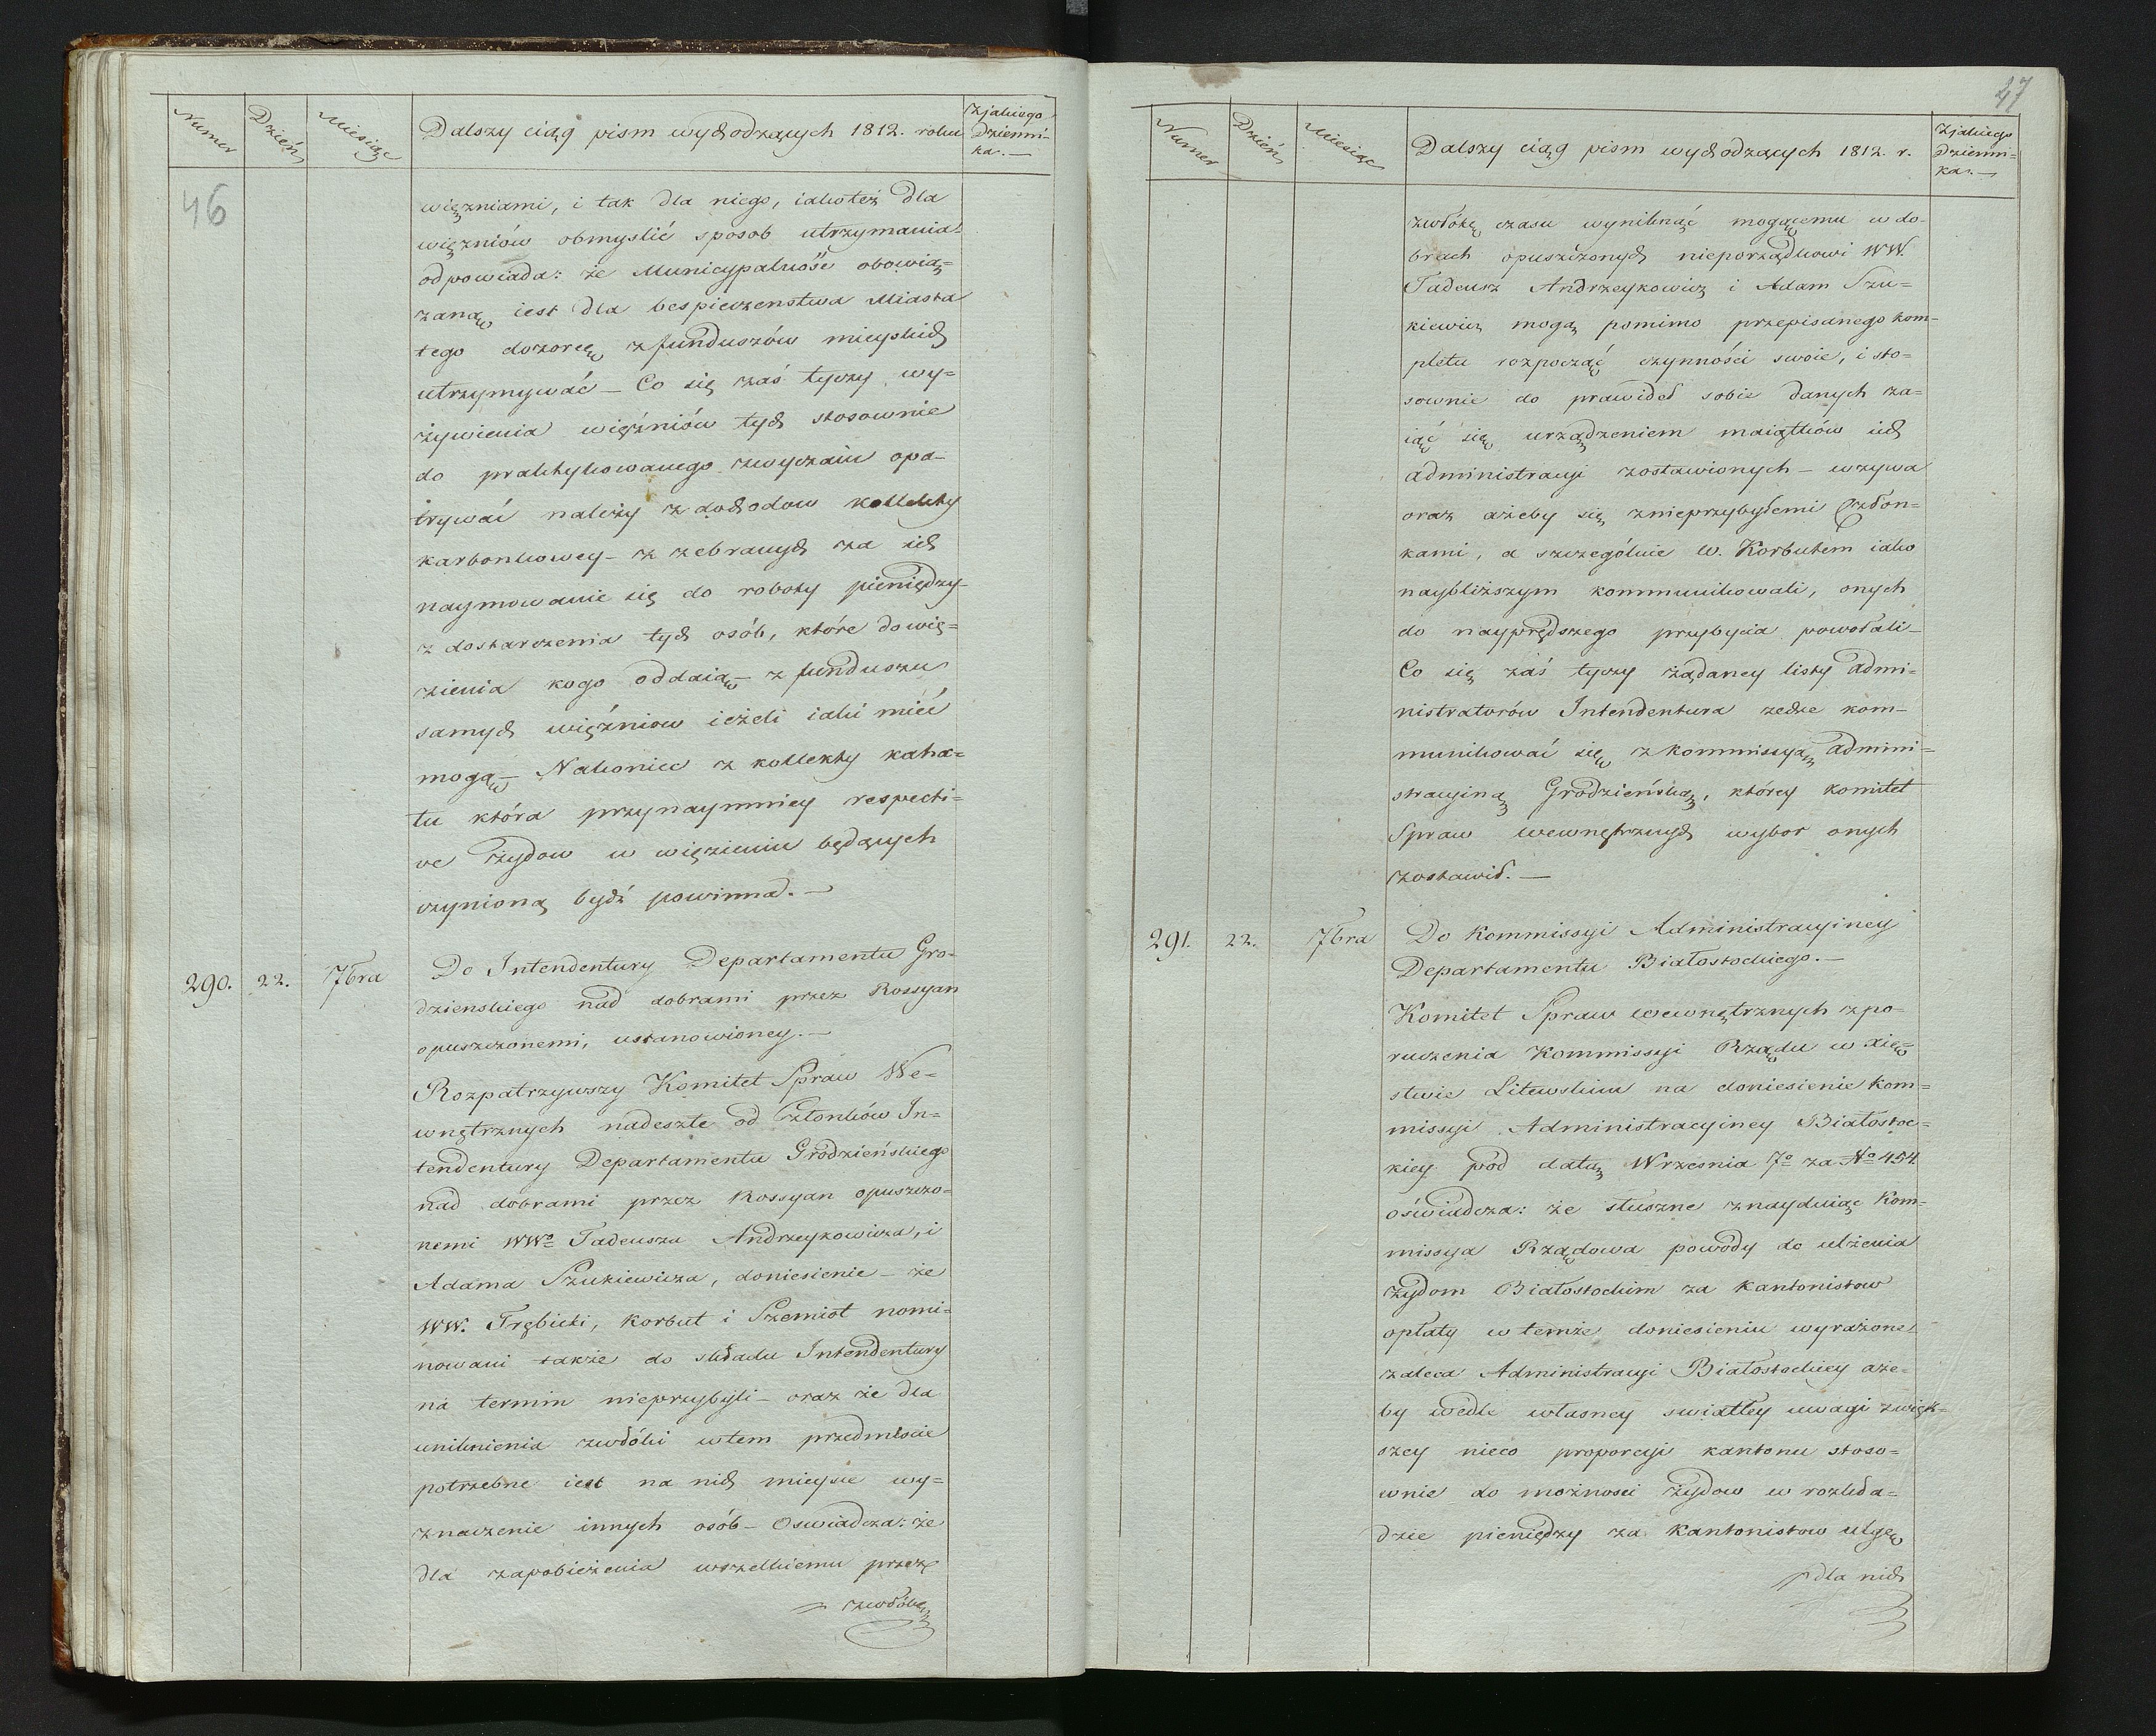 Numer Dzień Miesiąc Dalszy ciąg pism wychodzących 1812. roku Z jakiego Dzienni-
ka.—
46
więzniami, i tak dla niego, iakoteż dla
więzniów obmyslić sposob utrzymania:
odpowiada: że Municypalność obowią=
zaną iest dla bespieczenstwa Miasta
tego dozorcę z funduszów mieyskich
utrzymywać — Co się zaś tyczy wy=
żywienia więźniów tych stosownie
do praktykowanego zwyczaiu opa-
trywać należy z dochodow kollekty
karbonkowey — z zebranych za ich
naymowanie się do roboty pieniędzy —
z dostarczenia tych osób, które do wię=
zienia kogo oddaią — z funduszu
samych więźniow ieżeli iaki mieć
mogą — Nakoniec z kollekty kaha=
łu która przynaymniey respecti=
ve Żydow w więzieniu będących
czynioną bydź powinna. —
290. 22. 7bra Do Intendentury Departamentu Gro-
dzienskiego nad dobrami przez Rossyan
opuszczonemi, ustanowioney. —
Rozpatrzywszy Komitet Spraw We-
wnętrznych nadeszłe od Członków In=
tendentury Departamentu Grodzieńskiego
nad dobrami przez Rossyan opuszczo=
nemi WWo Tadeusza Andrzeykowicza, i
Adama Szukiewicza, doniesienie — że
WW. Trębicki, Korbut i Szemiot nomi=
nowani także do składu Intendentury
na termin nieprzybyli — oraz że dla
uniknienia zwłóki wtem przedmiocie
potrzebne iest na nich mieysce wy=
znaczenie innych osób — Oswiadcza: że
dla zapobieżenia wszelkiemu przez
zwłókę
47
Numer Dzień Miesiąc Dalszy ciąg pism wychodzących 1812. r. Z jakiego Dzienni=
ka. —
zwłókę czasu wyniknąć mogącemu w do-
brach opuszczonych nieporządkowi WW.
Tadeusz Andrzeykowicz i Adam Szu=
kiewicz mogą pomimo przepisanego kom-
pletu rozpocząć czynności swoie, i sto=
sownie do prawideł sobie danych za=
iąć się urządzeniem maiątków ich
administracyi zostawionych — wzywa
oraz ażeby się znieprzybyłemi Człon=
kami, a szczególnie W. Korbutem iako
naybliższym kommunikowali, onych
do nayprędszego przybycia powołali —
Co się zaś tyczy żądaney listy admi=
nistratorów Intendentura zechce kom-
munikować się z kommissyą admini=
stracyiną Grodzieńską, którey komitet
Spraw wewnętrznych wybor onych
zostawił. —
291. 22. 7bra Do Kommissyi Administracyiney
Departamentu Białostockiego. —
Komitet Spraw wewnętrznych z po-
ruczenia Kommissyi Rządu w Xię=
stwie Litewskim na doniesienie kom=
missyi Administracyiney Białostoc=
kiey pod datą Wrzesnia 7o za No 454
oświadcza: że słuszne znayduiąc Kom=
missya Rządowa powody do ulżenia
żydom Białostockim za kantonistow
opłaty wtemże doniesieniu wyrażone
zaleca Administracyi Białostockiey aże=
by wedle własney swiatłey uwagi zwięk=
szey nieco proporcyi kantonu stoso=
wnie do możnosci żydow w rozkła=
dzie pieniędzy za kantonistow ulgę
dla nich